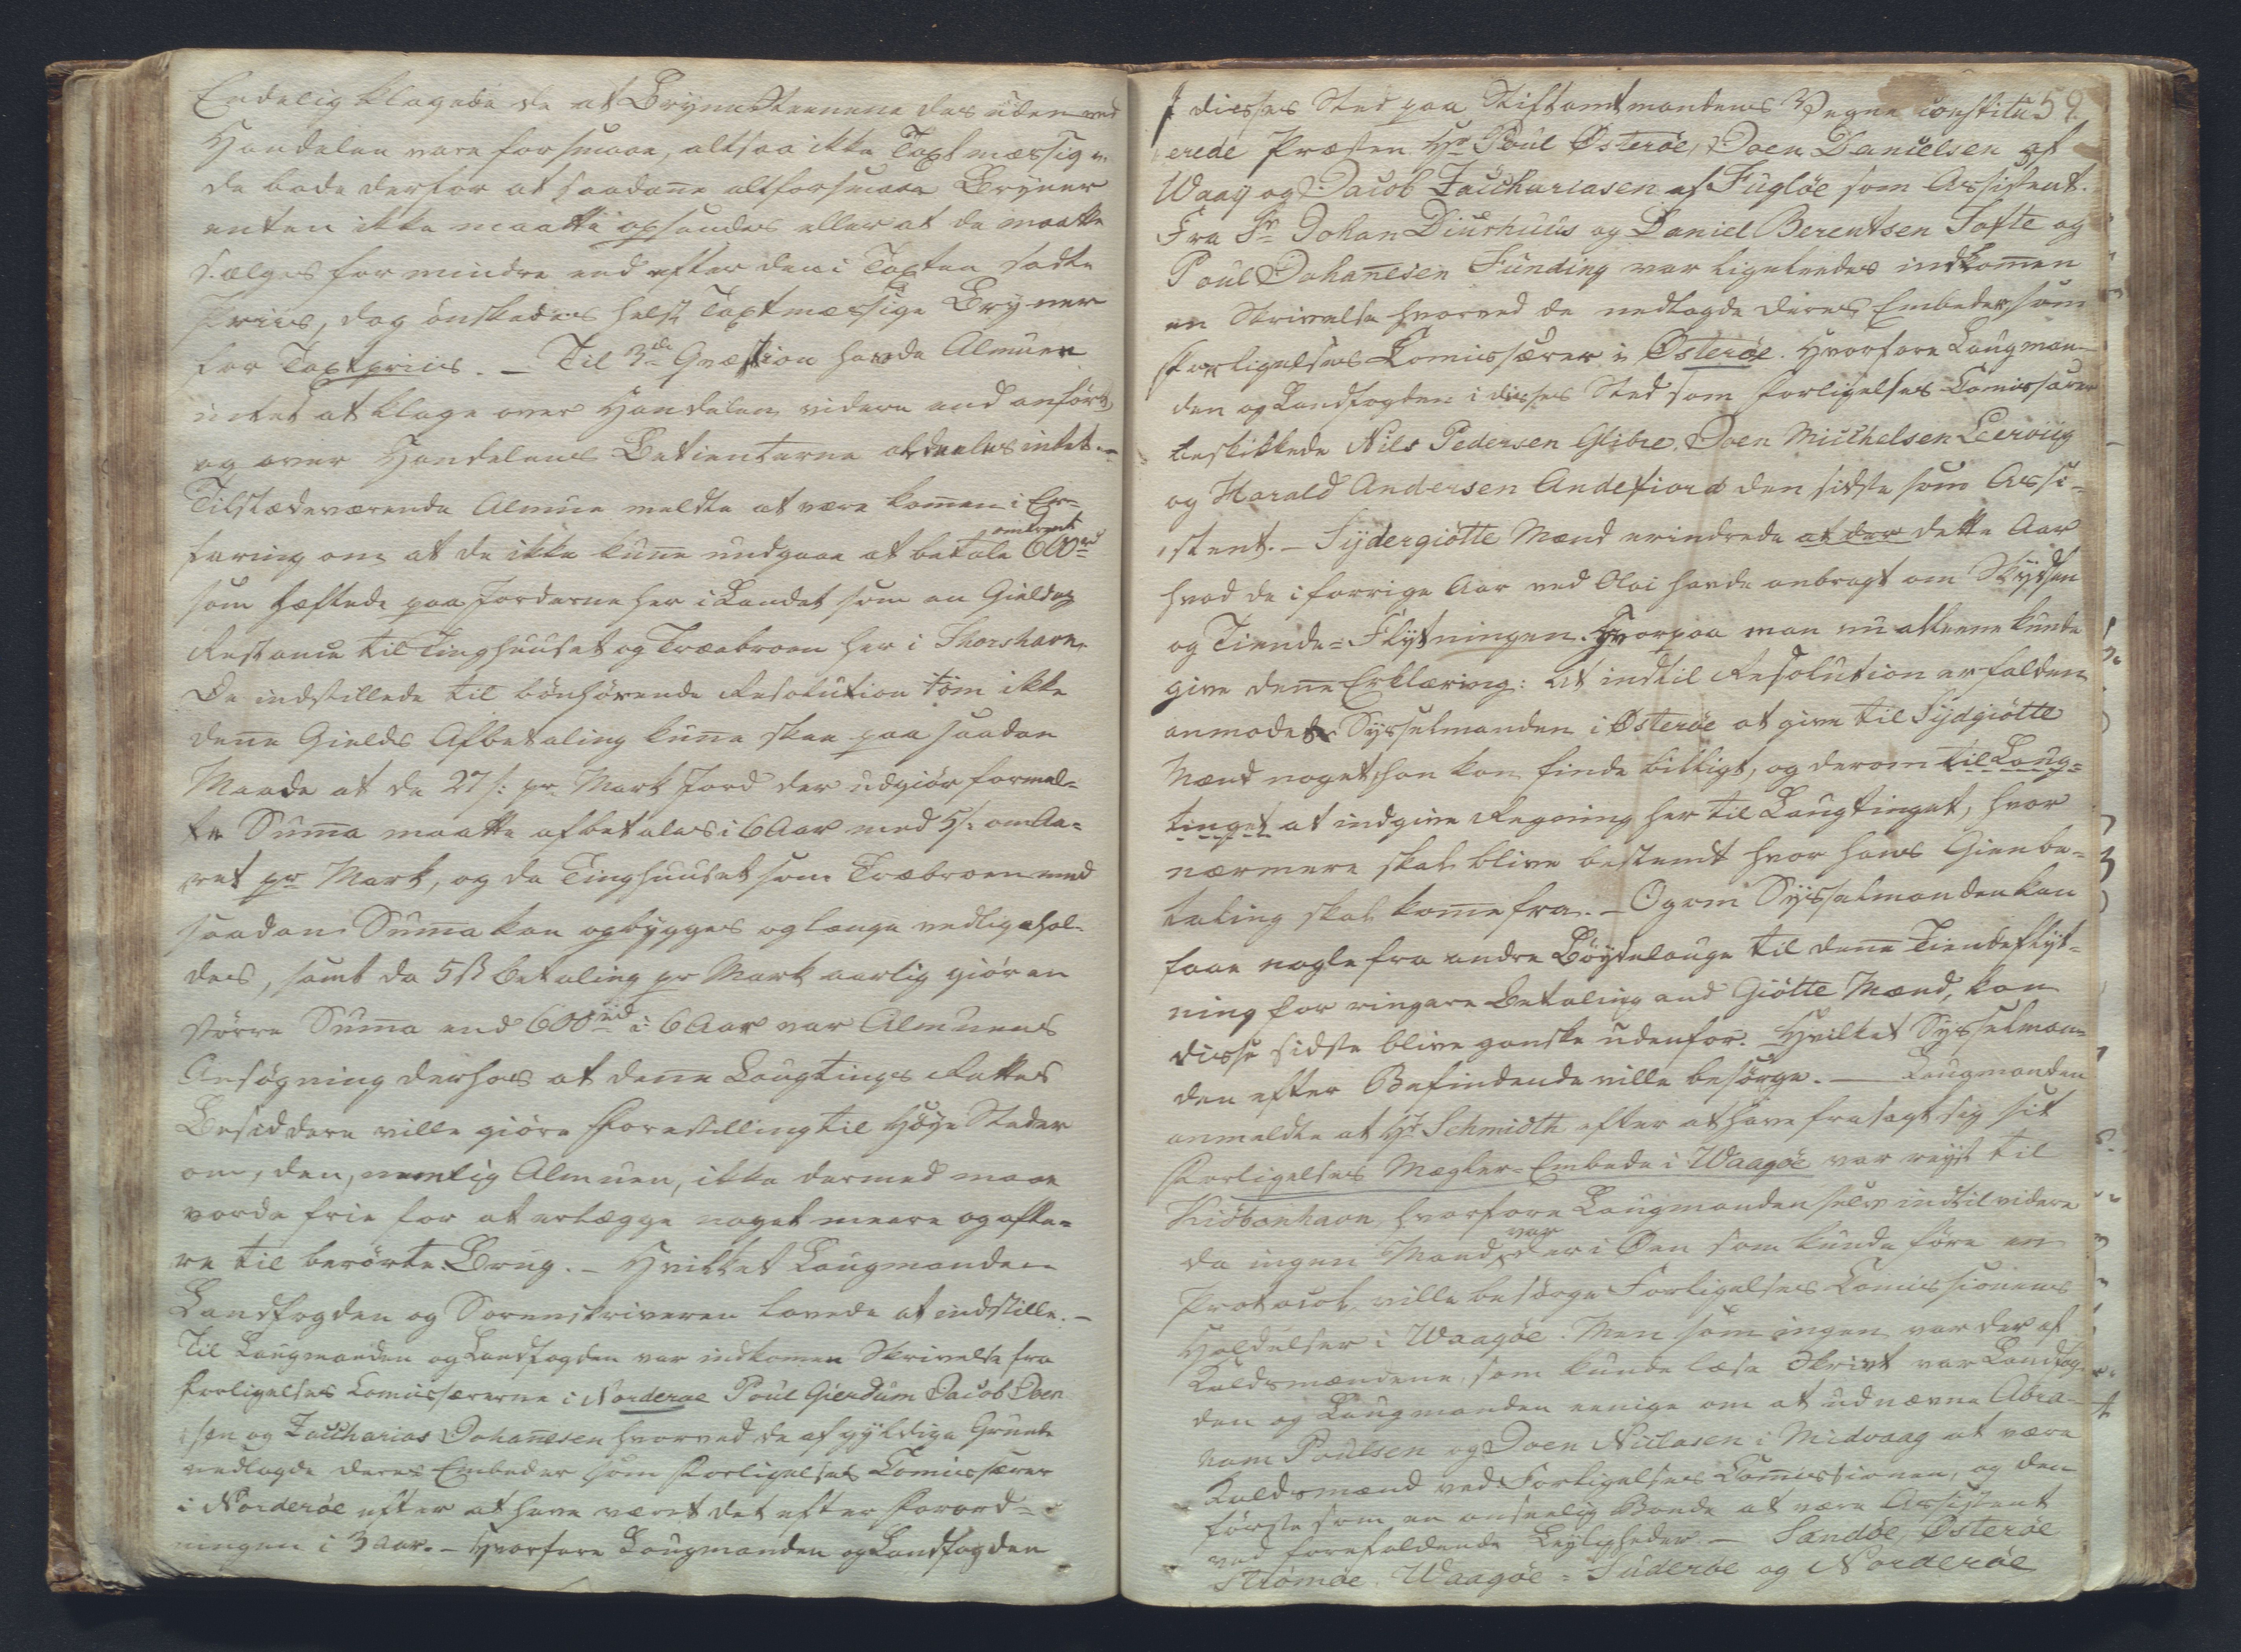 Endelig klagede de at Brynesteenene des uden ved
Handelen vare for smaae, altsaa ikke Taxtmæssige
de bade derfor at saadane altforsmaae Bryner
enten ikke maatte opsendes eller at de maatte
sælges for mindre end efter den i Taxten sadte
Priis, dog ønskedes helst Taxtmæssige Bryner
for Taxtpriis. _ Til 3die Qvæstion havde Almuen
intet at klage over Handelen videre end anført,
og over Handelens Betienterne aldeeles intet. _
Tilstædeværende Almue meldte at være komen i Er=
faring om at de ikke kune undgaae at betale omtrent 600rd
som hæftede paa Jorderne her i Landet som en Gield og
Restance til Tinghuuset og Træebroen her i Thorshavn.
De indstillede til bönhörende Resolution om ikke
dene Gields Afbetaling kune skee paa saadan
Maade at de 27 s: pr Mark Jord der udgiör formel=
te Suma maatte afbetales i 6 Aar med 5 s: om Aa=
ret pr Mark, og da Tinghuuset som Træbroen med
saadan Suma kan opbygges og længe vedligehol=
des, samt da 5 s Betaling pr Mark aarlig giör en
större Suma end 600rd i 6 Aar var Almuens
Ansögning derhos at dene Laugtings Rettes
Besiddere ville giöre Forestilling til Höye Steder
om, den, nemlig Almuen, ikke dermed maae
vorde frie for at erlægge noget meere og ofte=
re til berörte Brug. _ Hvilket Laugmanden
Landfogden og Sorenskriveren lovede at indstille. _
Til Laugmanden og Landfogden var indkomen Skrivelse fra
Forligelses Comissærerne i Norderøe Poul Gierdum Jacob Joen
sen og Zaccharias Johanesen hvorved de af gyldige Grunde
nedlagde deres Embeder som Forligelses Comissærer
i Norderöe efter at have været det efter Forord=
ningen i 3 Aar. _ Hvorfore Laugmanden og Landfogden
59.
i disses Sted paa Stiftamtmandens Vegne constitu
erede Præsten Hr Poul Østerøe, Joen Danielsen af
Waag og Jacob Zacchariasen af Fugløe som Assistent.
Fra Sr Johan Diurhuus og Daniel Berentsen Tofte og
Poul Johanesen Funding var ligeleedes indkomen
en Skrivelse hvorved de nedlagde deres Embeder som
Forligelses Comissærer i Østerøe. Hvorfore Laugman=
den og Landfogden i disses Sted som Forligelses Comissærer
beskikkede Nils Pedersen Glibre, Joen Micchelsen Leervig
og Harald Andersen Andefiord den sidste som Assi=
stent. _ Sydergiøtte Mænd erindrede at der dette Aar
hvad de i forrige Aar ved Olai havde anbragt om Skydsen
og Tiende=Flytningen. Hvorpaa man nu alleene kunde
give dene Erklæring: At indtil Resolution er falden
anmodes Sysselmanden i Østeröe at give til Sydgiøtte
Mænd noget, han kan finde billigt, og derom til Laug=
tinget at indgive Regning her til Laugtinget, hvor
nærmere skal blive bestemt hvor hans Gienbe=
taling skal kome fra. _ Og om Sysselmanden kan
faae nogle fra andre Böydelauge til dene Tiendeflyt=
ning for ringere Betaling end Giötte Mænd, kan
disse sidste blive ganske udenfor. Hvilket Sysselman=
den efter Befindende ville besörge. _ Laugmanden
anmeldte at Hr Schmidth efter at have frasagt sig sit
Forligelses Mægler=Embede i Waagøe var reyst til
Kiöbenhavn, hvorfore Laugmanden selv indtil videre
da ingen Mand var der i Øen som kunde före en
Protocol, ville besörge Forligelses Comissionens
Holdelser i Waagøe. Men som ingen var der af
Kuldsmændene, som kunde læse Skrivt var Landfog=
den og Laugmanden eenige om at udnævne Abra=
ham Poulsen og Joen Niclasen i Midvaag at være
Kuldsmænd ved Forligelses Comissionen, og den
förste som en anseelig Bonde at være Assistent
ved forefaldende Leyligheder. _ Sandøe, Østerøe
Strömøe, Waagøe = Suderøe og Norderøe